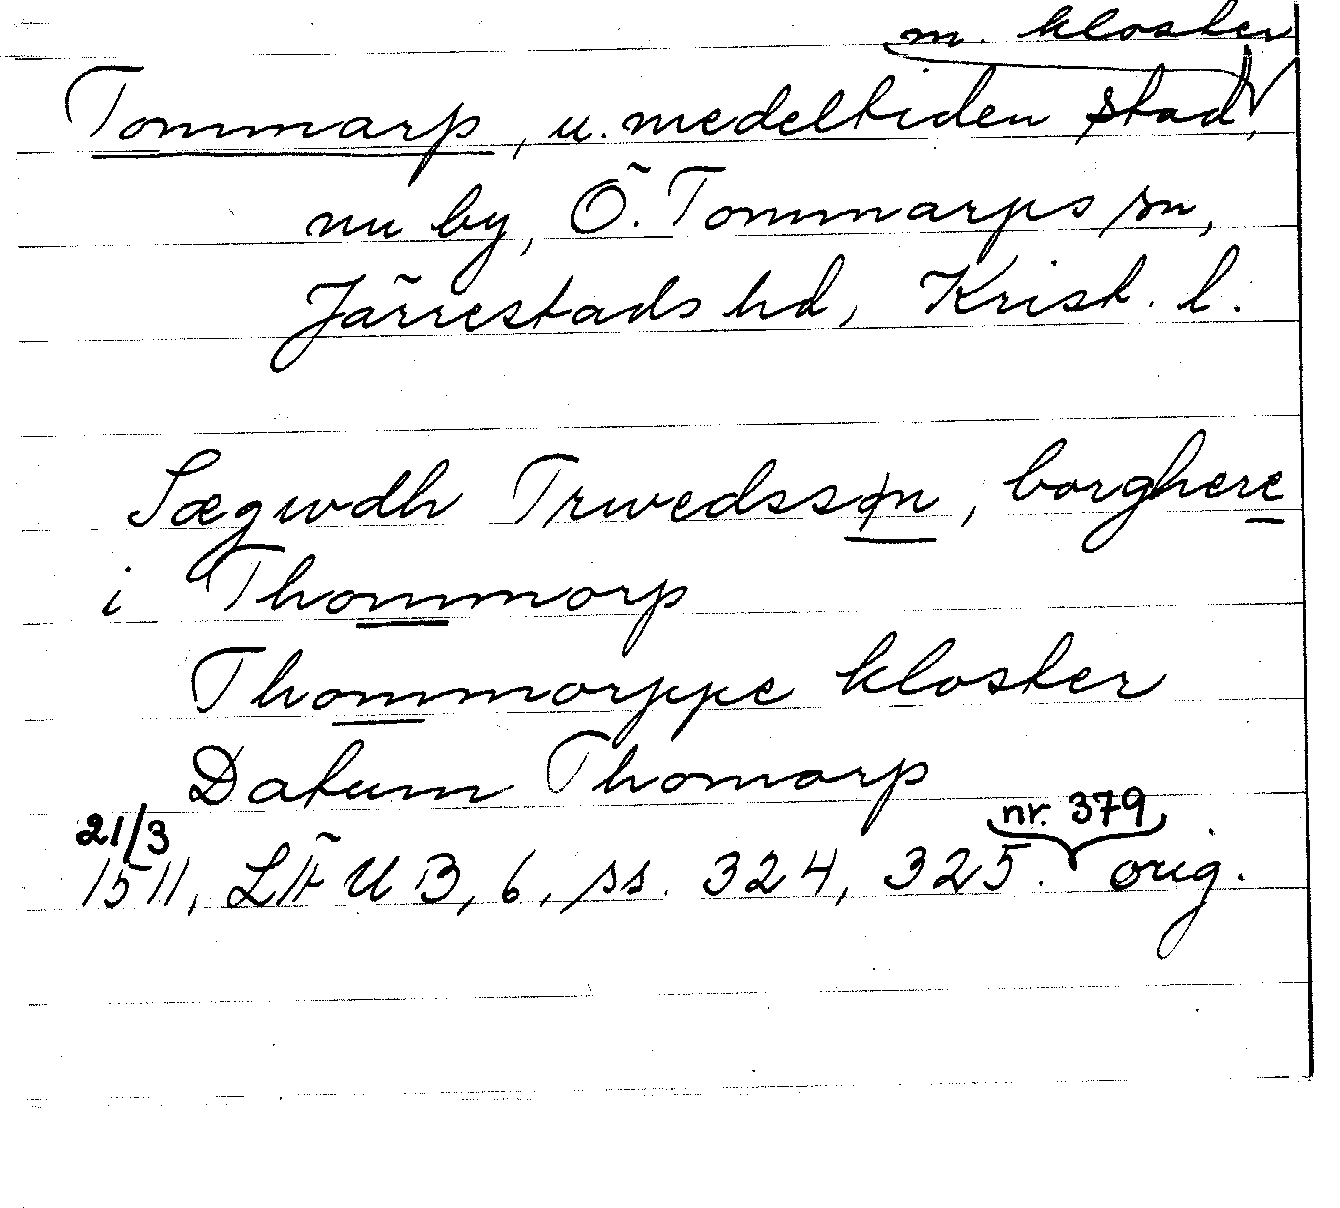 m. kloster
Tommarp, u. medeltiden stad,
nu by, Ö. Tommarps sn,
Järrestads hd, Krist. l.
Sægwdh Trwedssøn, borghere
i Thommorp
Thommorppe kloster
Datum Thomarp
21/3 nr. 379
1511, LÄUB, 6, ss. 324, 325. orig.